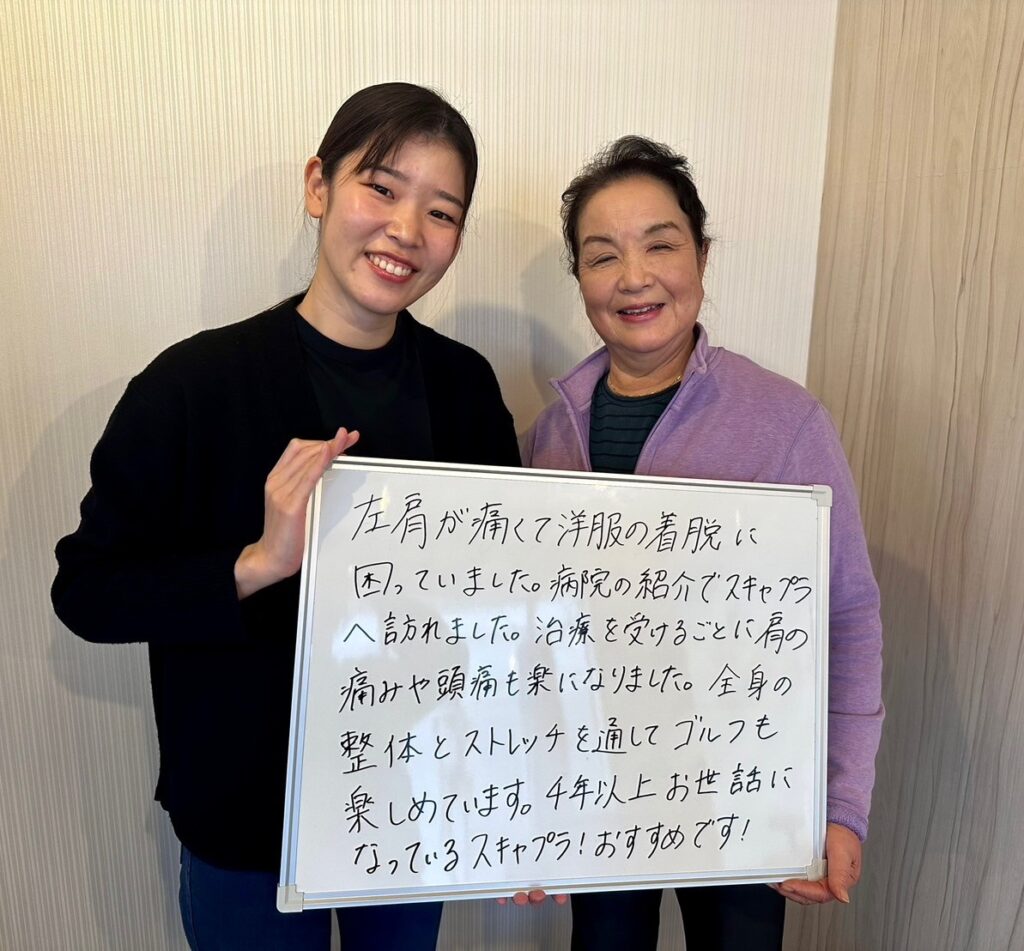 左肩が痛くて洋服の着脱に
困っていました。病院の紹介でスキャプラ
へ訪れました。治療を受けるごとに肩の
痛みや頭痛も楽になりました。全身の
整体とストレッチを通してゴルフも
楽しめています。4年以上お世話に
なっているスキャプラ!おすすめです!